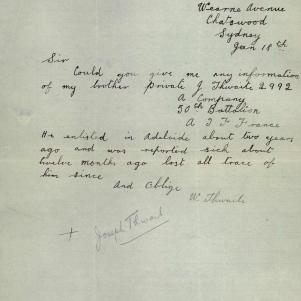 Wearne Avenue
Chatswood
Sydney
Jan 18th
Sir
Could you give me any information
of my brother Private J Thwaite 2992
A Company
50th Battalion
A I F France
He enlisted in Adelaide about two years
ago and was reported sick about
twelve months ago lost all trace of
him since
And Oblige
W. Thwaite
Joseph Thwait